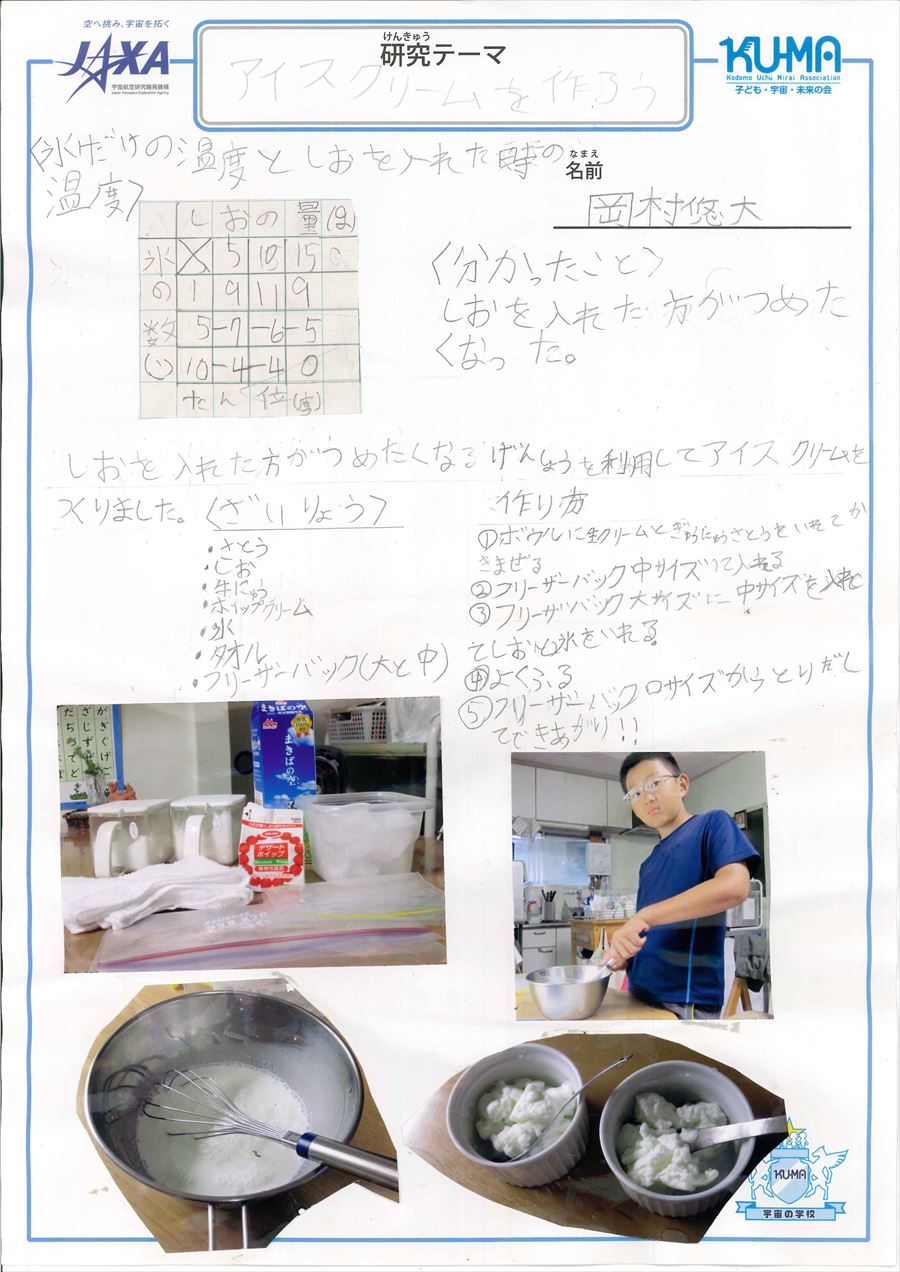 空へ挑み、宇宙を拓く
JAXA
宇宙航空研究開発機構
Japan Aerospace Exploration Agency
けんきゅう
研究テーマ
アイスクリームを作ろう
KU-MA
Kodomo Uchu Mirai Association
子ども・宇宙・未来の会
〈氷だけの温度としおを入れた時の
温度〉
なまえ
名前
岡村悠大
しおの量(g)
氷 ╳ 5 10 15
の 1 9 11 9
数 5 -7 -6 -5
(こ) 10 -4 -4 0
たん位(度)
〈分かったこと〉
しおを入れた方がつめた
くなった。
しおを入れた方がつめたくなるげんしょうを利用してアイスクリームを
つくりました。
〈ざいりょう〉
・さとう
・しお
・牛にゅう
・ホイップクリーム
・氷
・タオル
・フリーザーバック(大と中)
作り方
①ボウルに生クリームとぎゅうにゅうさとうをいれてか
きまぜる
②フリーザーバック中サイズに入れる
③フリーザーバック大サイズに中サイズを入れ
てしおと氷をいれる
④よくふる
⑤フリーザーバック中サイズからとりだし
てできあがり!!
がぎぐげご
ざじずぜ
だぢづでど
まきばの空
まきばの空
デザート
ホイップ
Dessert Whip
植物性脂肪
KU-MA
宇宙の学校